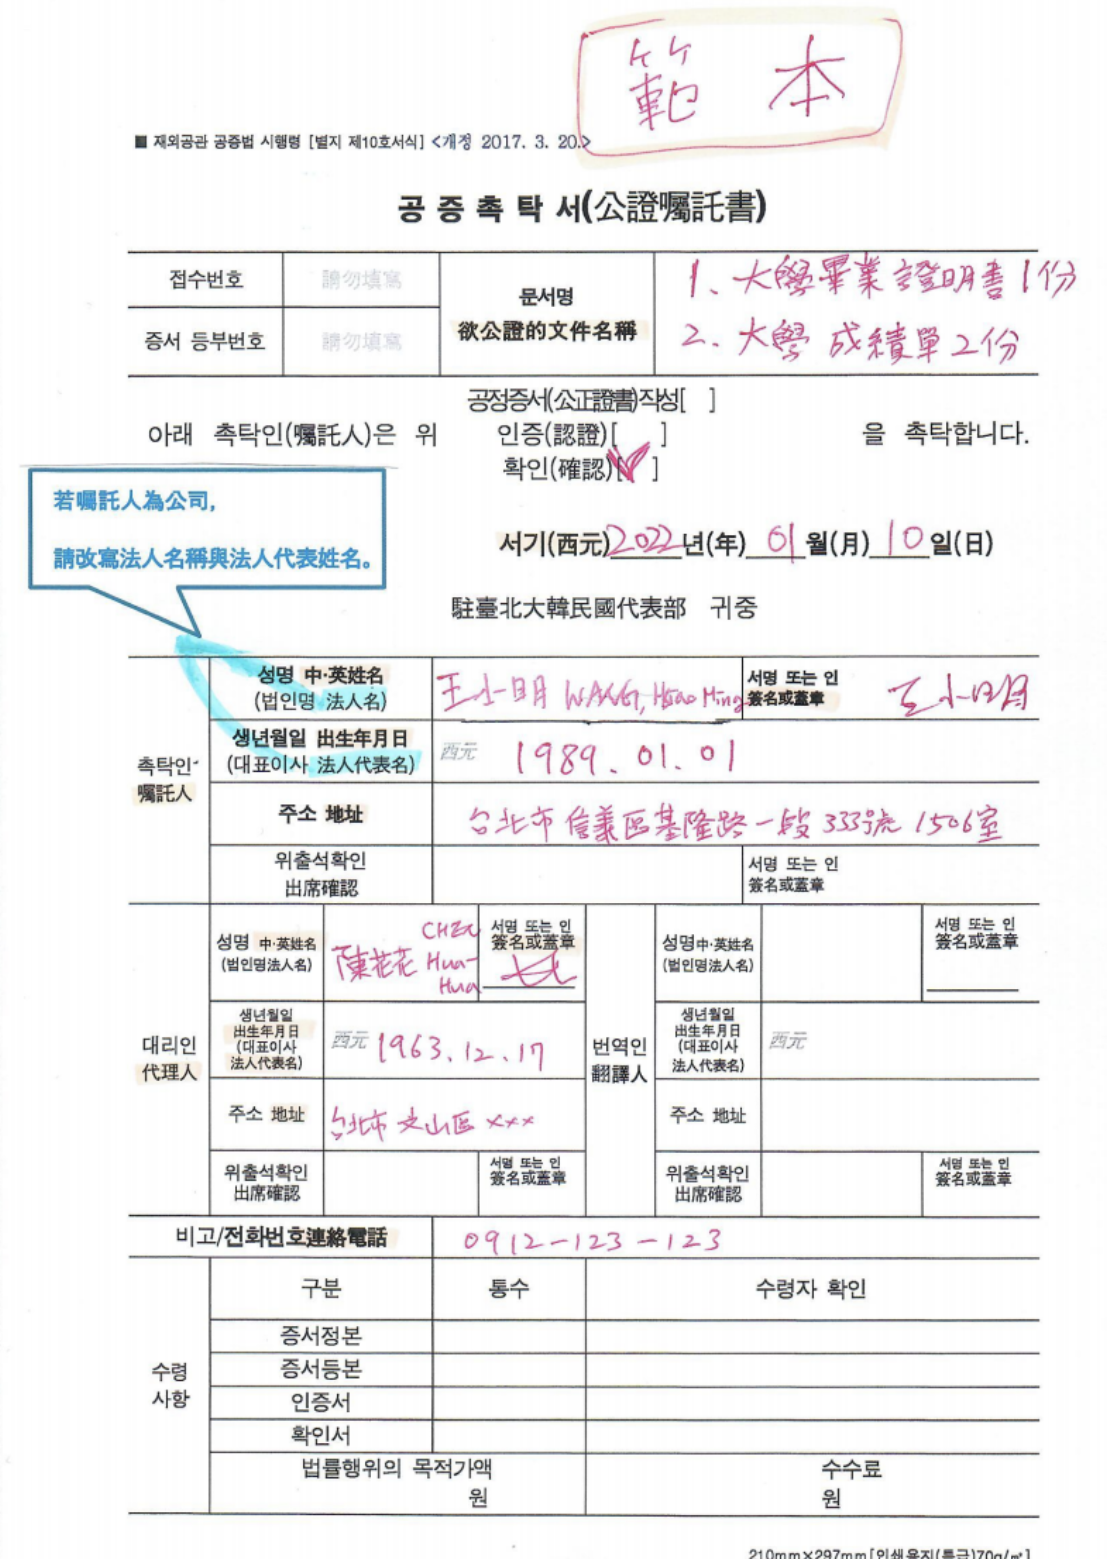 範 本
■ 재외공관 공증법 시행령 [별지 제10호서식] <개정 2017. 3. 20.>
공 증 촉 탁 서(公證囑託書)
접수번호 請勿填寫
증서 등부번호 請勿填寫
문서명
欲公證的文件名稱
1、大學畢業證明書1份
2、大學成績單2份
공정증서(公正證書)작성[ ]
아래 촉탁인(囑託人)은 위 인증(認證)[ ] 을 촉탁합니다.
확인(確認)[✓]
若囑託人為公司,
請改寫法人名稱與法人代表姓名。
서기(西元)2022년(年) 01월(月) 10일(日)
駐臺北大韓民國代表部 귀중
촉탁인
囑託人
성명 中·英姓名
(법인명 法人名)
王小明 WANG, Hsiao Ming
서명 또는 인
簽名或蓋章
王小明
생년월일 出生年月日
(대표이사 法人代表名)
西元 1989.01.01
주소 地址
台北市信義區基隆路一段333號1506室
위출석확인
出席確認
서명 또는 인
簽名或蓋章
대리인
代理人
성명 中·英姓名
(법인명法人名)
陳花花 CHEN Hua-Hua
서명 또는 인
簽名或蓋章
생년월일
出生年月日
(대표이사
法人代表名)
西元 1963.12.17
주소 地址
台北市文山區×××
위출석확인
出席確認
서명 또는 인
簽名或蓋章
번역인
翻譯人
성명中·英姓名
(법인명法人名)
서명 또는 인
簽名或蓋章
생년월일
出生年月日
(대표이사
法人代表名)
西元
주소 地址
위출석확인
出席確認
서명 또는 인
簽名或蓋章
비고/전화번호連絡電話 0912-123-123
수령
사항
구분 통수 수령자 확인
증서정본
증서등본
인증서
확인서
법률행위의 목적가액
원
수수료
원
210mm×297mm[인쇄용지(특급)70g/㎡]